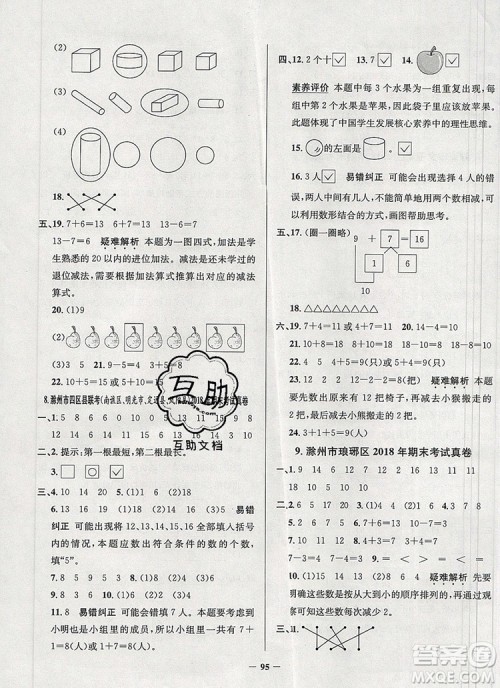 (2)
(3)
(4)
18.
五、19. 7+6=13 6+7=13 13-6=7
13-7=6 疑难解析 本题为一图四式,加法是学
生熟悉的 20 以内的进位加法,减法是还未学过的
退位减法,需要根据加法算式推算出对应的减法
算式。
20. (1)9
(2)
(3)5 21. 9+4=13 3+5=8
22. 10+5=15 6+10=16
8. 滁州市四区县联考
一、1. 5 8 9 13 16 18 19
2. 提示:一画最短,二画最长。
3.
三、4. 10 14 20 5. (1)2 (2)18
6. (1)18 (2)13 (3)19 (4)5 易错
纠正 可能出现将 12、13、14、15、16 全部填入括号
内的情况,本题应数出符合条件的数的个数,
填“5”。
7. 8 5 9 2 8. 4 8 16 9. 8 5 9 6
10. 3 6 9 12 13 19 16 13 10
11. 8 易错纠正 可能会错填 7 人。本题要考虑到
小明也是小组里的成员,所以这个小组里一共有
7+1=8(人)。
四、12. 2 个十 13. 7 14.
素养评价 本题中每 3 个水果为一组重复出现,每
组中第 2 个水果是苹果,因此袋子里应该放苹果。
此题体现了中国学生发展核心素养中的理性思维。
15.
16. 3 人 易错纠正 可能会出现选择 4 人的错
误,两人中间有几人,不能简单地用两数相减,可以
利用数形结合的方法,画图帮助思考。
五、17. (圈一圈略) 9 + 7 = 16
1 6
10
18. △△△△△△△△△
六、19. 7+4=11 20. 10+7=17 21. 14-4=10
22. 9+4=13(个) 23. 5+2=7(只) 7-2=5(只)
2+5=7(只) 24. 12-4=8(只) 疑难解析 本
题要先数出原来有 12 把椅子,再根据“小猴跑走
4 只”,可知有 4 把椅子空出来,由此可以推出小猴
有 4 只,最后去掉小猴搬走的 4 把椅子,还剩下
12-4=8(把)。
9. 滁州市琅琊区 2018 年期末考试真卷
一、1. 15 14 10 10 13 13 7 8
2. 0 17 19 4 14 0 8 7
二、3. 14 4 1 4. 19 20 5. 8 14 6. 14 16
7. 2 10 8. 9 5 4 9. 4 8 10. 8 3 4 2 3
5 7 18 11. 6 8 2 4 6 疑难解析 通过
观察发现这些数是从大到小的顺序排列的,再根据
已知数发现每次减少 2。
三、12.
互助
互助文档
95
答案圈
MXQE.COM